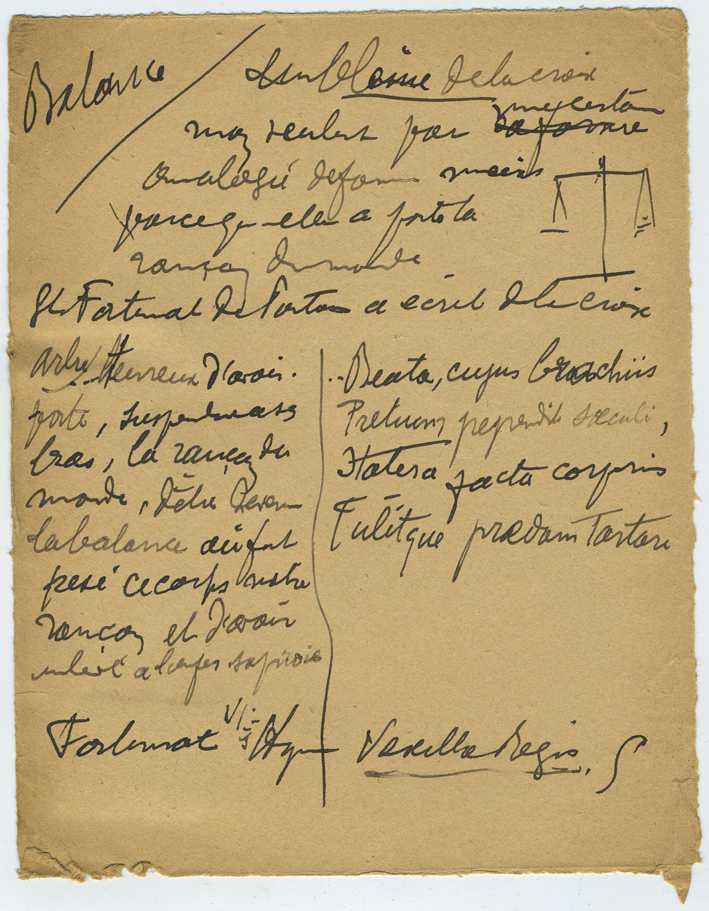 Balance
Emblème de la croix
non seulement par une certaine
sa forme
analogie de forme mais
parce qu'elle a porté la
rançon du monde
St Fortunat de Poitiers a écrit de la croix
arbre Heureux d'avoir
porté, suspendu à ses
bras, la rançon du
monde, d'être devenu
la balance où fut
pesé ce corps notre
rançon et d'avoir
enlevé à l'enfer sa proie
..Beata, cujus brachiis
Pretium pependit sæculi,
Statera facta corporis
Tulitque prædam Tartari
Fortunat Hymn Vexilla Regis.